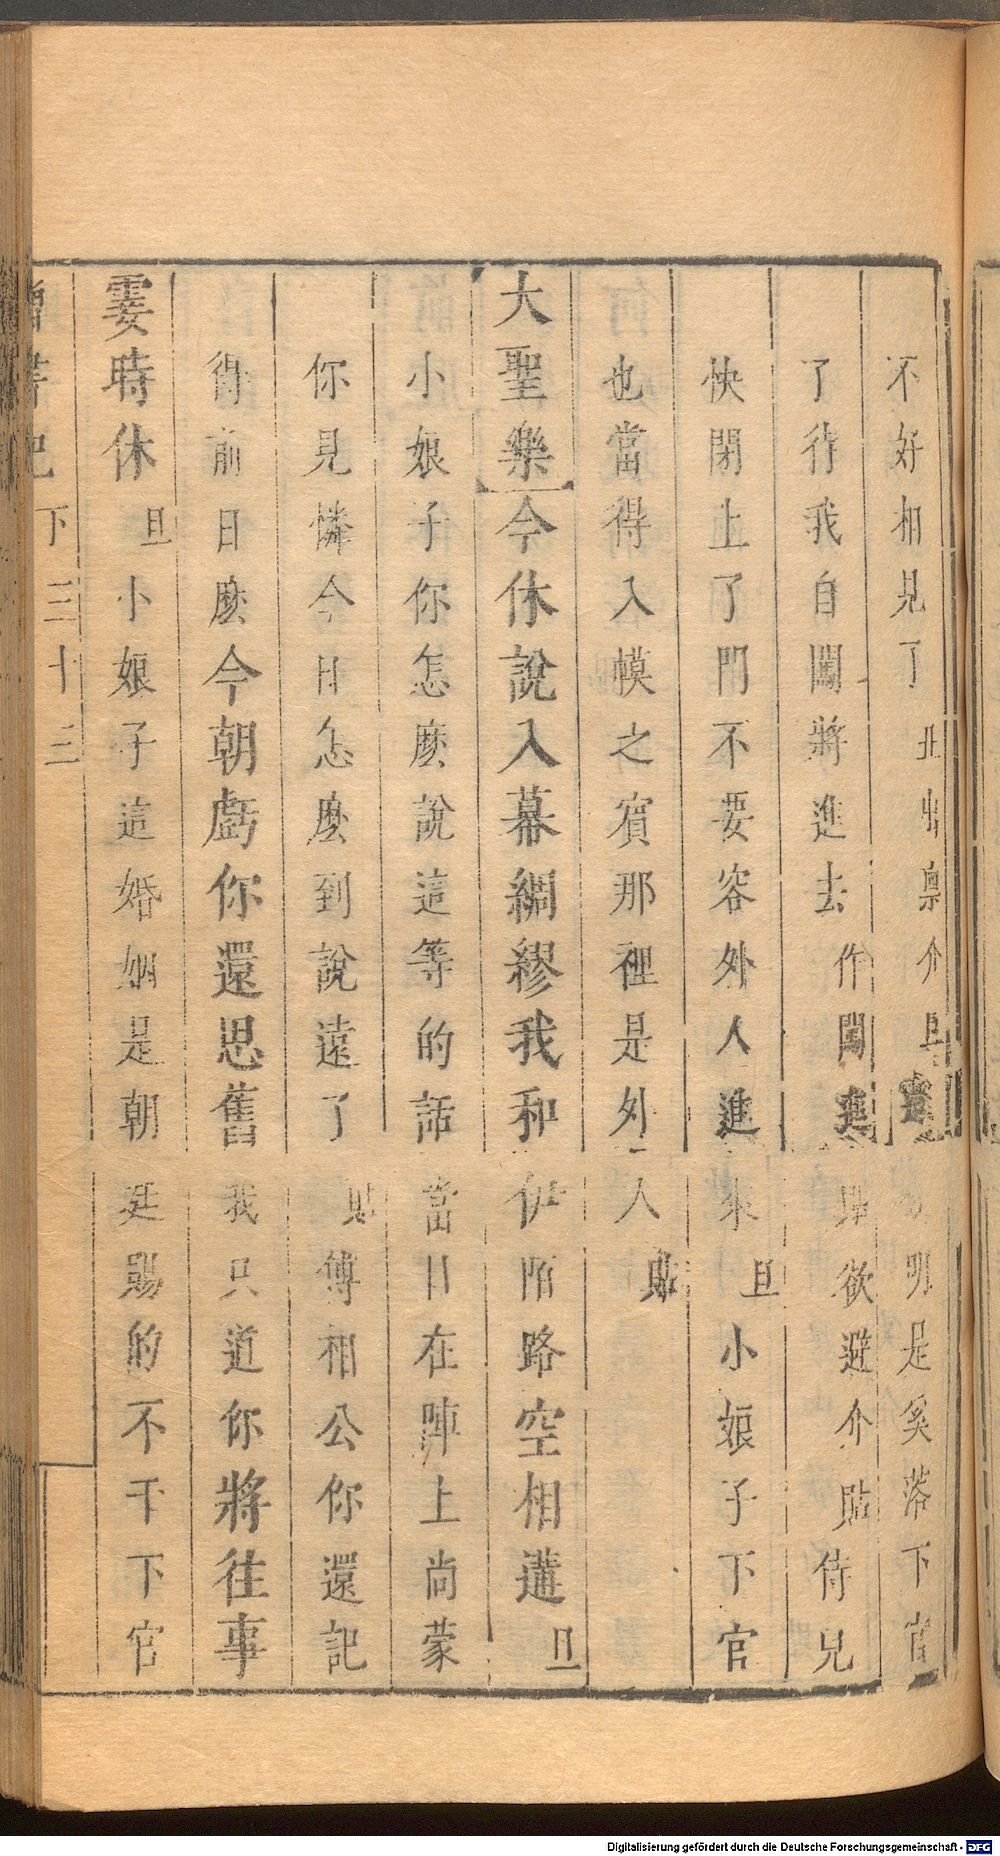 不好相見了丑出稟介旦明是奚落下官
了待我自闖將進去作闖進欲避介貼侍兒
快閉上了門不要容外人進來旦小娘子下官
也當得入幙之賓那裡是外人貼
大聖樂今休說入幕綢繆我和伊陌路空相遘旦
小娘子你怎麽說這等的話當日在陣上尚蒙
你見憐今日怎麽到說遠了貼傅相公你還記
得前日麽今朝戲你還思舊我只道你將往事
霎時休旦小娘子這婚姻是朝廷賜的不干下官
記 下 三十三
Digitalisierung gefördert durch die Deutsche Forschungsgemeinschaft - DFG